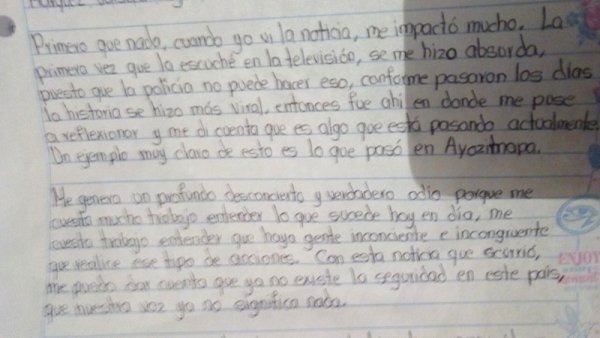 Primero que nada, cuando yo vi la noticia, me impactó mucho. La
primera vez que la escuché en la televisión, se me hizo absurda,
puesto que la policía no puede hacer eso, conforme pasaron los días
la historia se hizo más viral, entonces fue ahi en donde me puse
a reflexionar y me di cuenta que es algo que está pasando actualmente.
Un ejemplo muy claro de esto es lo que pasó en Ayozitnapa.
Me genera un profundo desconcierto y verdadero odio porque me
cuesta mucho trabajo entender lo que sucede hoy en día, me
cuesta trabajo entender que haya gente inconciente e incongruente
que realice ese tipo de acciones. Con esta noticia que ocurrió,
me puedo dar cuenta que ya no existe la seguridad en este país,
que nuestra voz ya no significa nada.
ENJOY